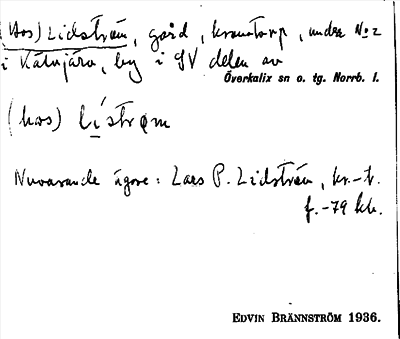 (hos) Lidström, gård, kronotorp, under No 2
i Kälvjärv, by i SV delen av
Överkalix sn o. tg. Norrb. l.
(hos) lístrøm
Nuvarande ägare: Lars P. Lidström, kr.-t.
f. -79 
EDVIN BRÄNNSTRÖM 1936.